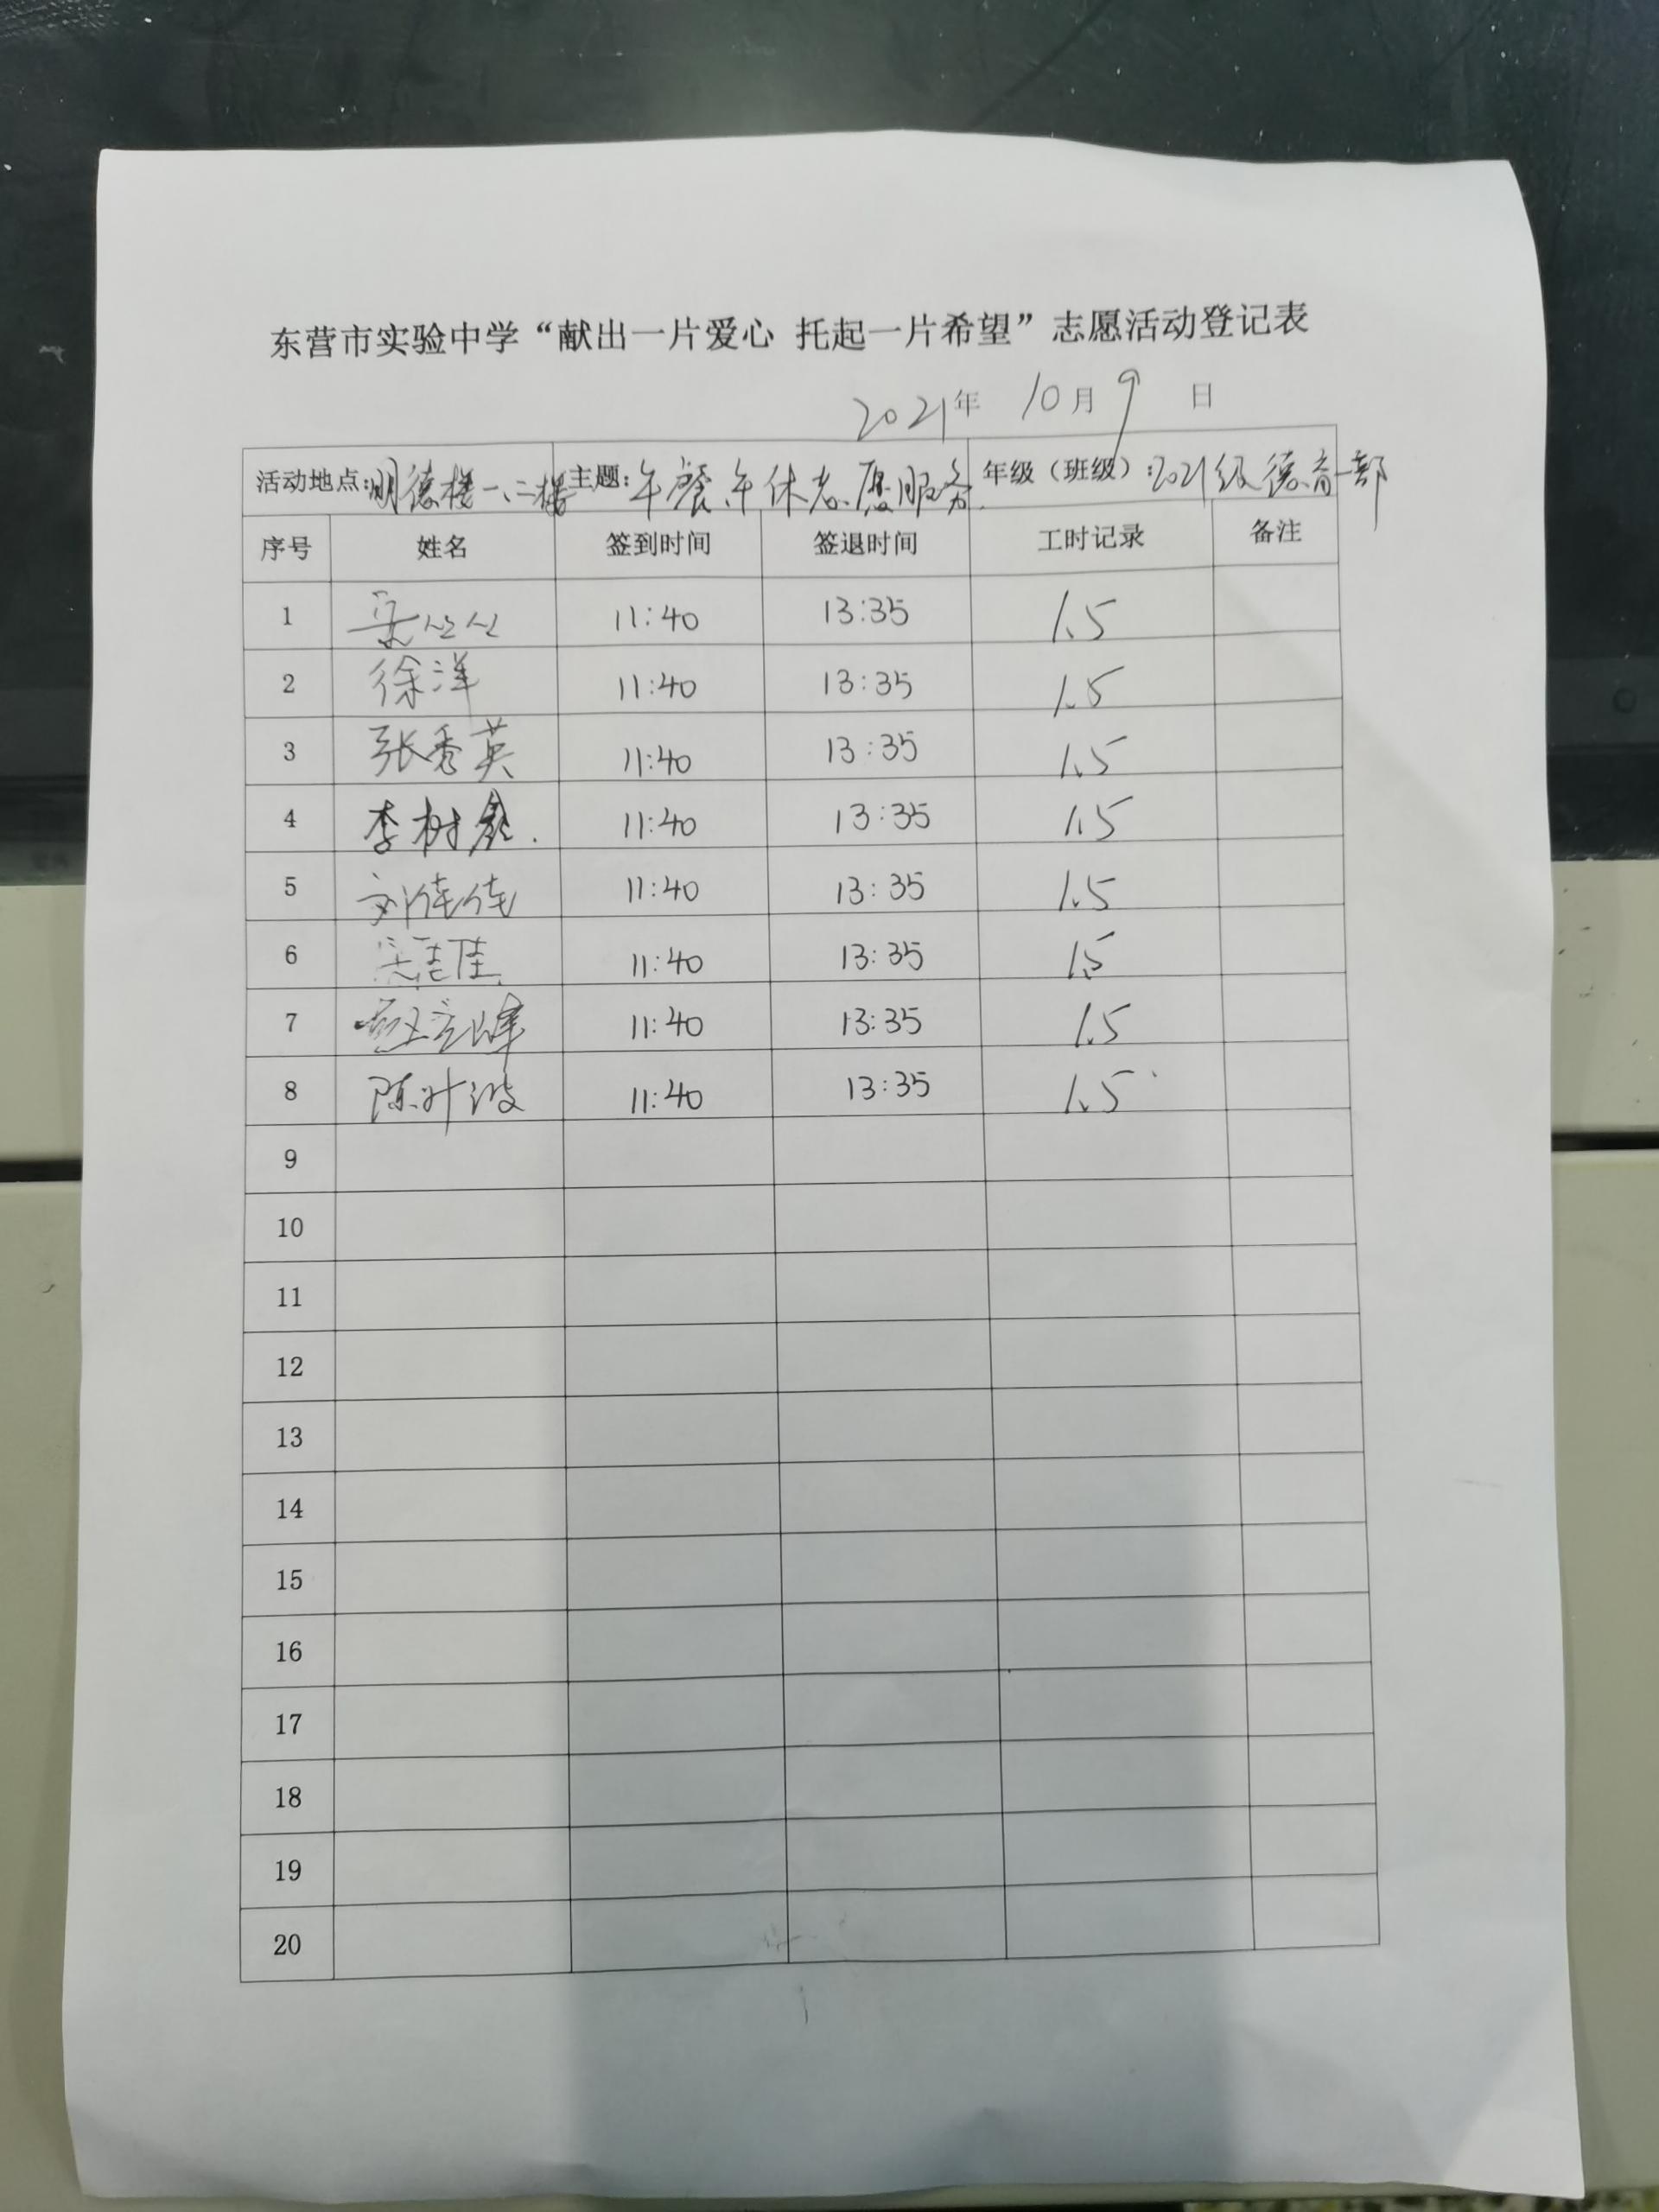 东营市实验中学“献出一片爱心 托起一片希望”志愿活动登记表
2021年 10月 9 日
活动地点:明德楼一、二楼 主题:午餐午休志愿服务 年级（班级）:2021级德育一部
序号 姓名 签到时间 签退时间 工时记录 备注
1 11:40 13:35 1.5
2 徐洋 11:40 13:35 1.5
3 张秀英 11:40 13:35 1.5
4 李树鑫. 11:40 13:35 1.5
5 刘佳佳 11:40 13:35 1.5
6 11:40 13:35 1.5
7 11:40 13:35 1.5
8 陈叶波 11:40 13:35 1.5
9
10
11
12
13
14
15
16
17
18
19
20